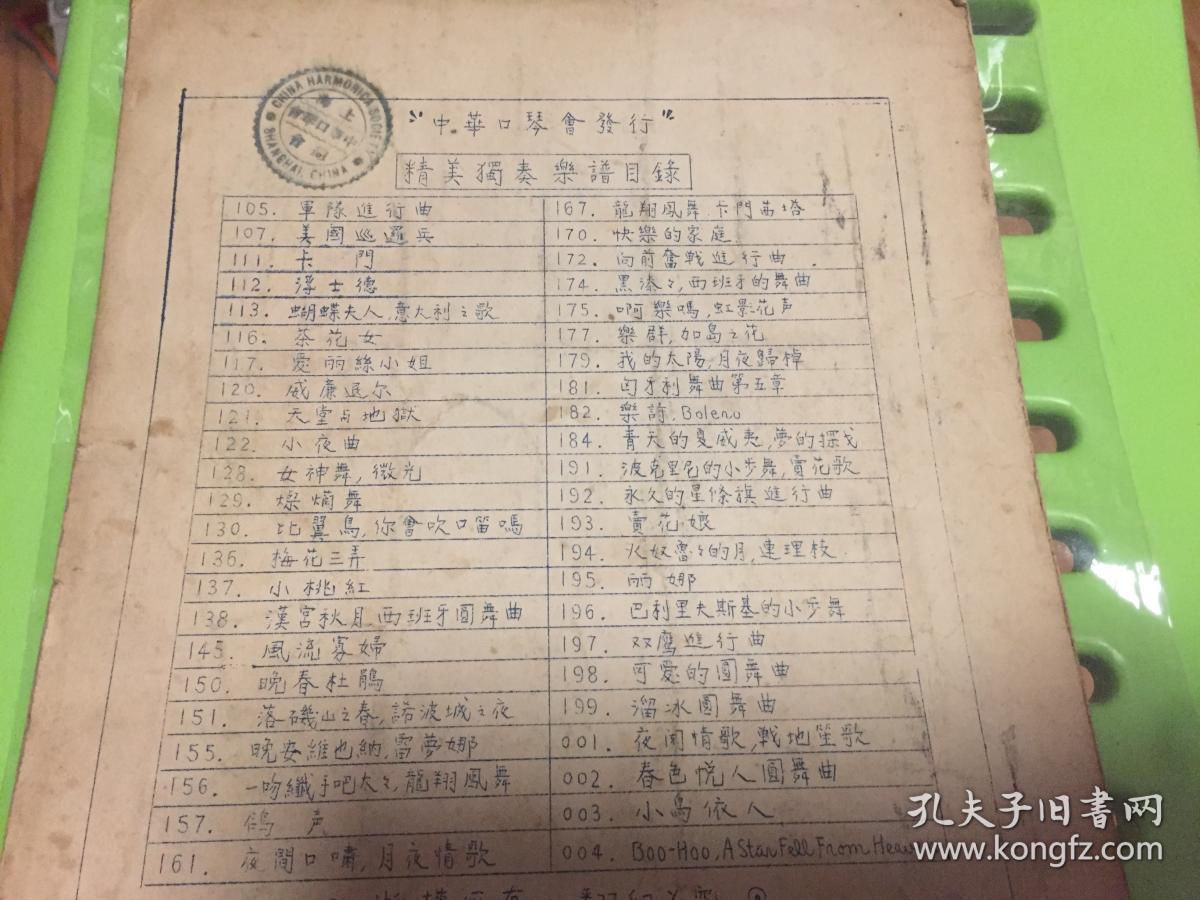 CHINA HARMONICA SOCIETY
上海
中華口琴會
SHANGHAI, CHINA
"中華口琴會發行"
精美獨奏樂譜目錄
105. 軍隊進行曲
107. 美國巡邏兵
111. 卡門
112. 浮士德
113. 蝴蝶夫人,意大利之歌
116. 茶花女
117. 愛丽絲小姐
120. 威廉退尔
121. 天堂与地獄
122. 小夜曲
128. 女神舞,微光
129. 燦爛舞
130. 比翼鳥,你會吹口笛嗎
136. 梅花三弄
137. 小桃紅
138. 漢宮秋月,西班牙圓舞曲
145. 風流寡婦
150. 晚春杜鵑
151. 落磯山之春,諾波城之夜
155. 晚安維也納,雷夢娜
156. 一吻纖手吧太々,龍翔鳳舞
157. 鴿声
161. 夜間口嘯,月夜情歌
167. 龍翔鳳舞,卡門茜塔
170. 快樂的家庭
172. 向前奮戰進行曲
174. 黑漆々,西班牙的舞曲
175. 啊樂嗎,虹影花声
177. 樂群,加島之花
179. 我的太陽,月夜歸棹
181. 匈牙利舞曲第五章
182. 樂詩,Boleno
184. 青天的夏威夷,夢的探戈
191. 波克里尼的小步舞,賣花歌
192. 永久的星條旗進行曲
193. 賣花娘
194. 火奴魯々的月,連理枝
195. 丽娜
196. 巴利里夫斯基的小步舞
197. 双鹰進行曲
198. 可愛的圓舞曲
199. 溜冰圓舞曲
001. 夜闌情歌,戰地笙歌
002. 春色悅人圓舞曲
003. 小鳥依人
004. Boo-Hoo, A Star Fell From Heav
孔夫子旧书网
www.kongfz.com